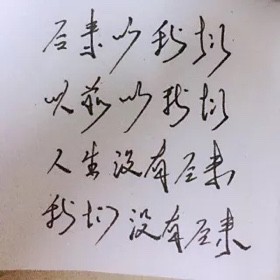 后来的我们
以前的我们
人生没有后来
我们没有后来